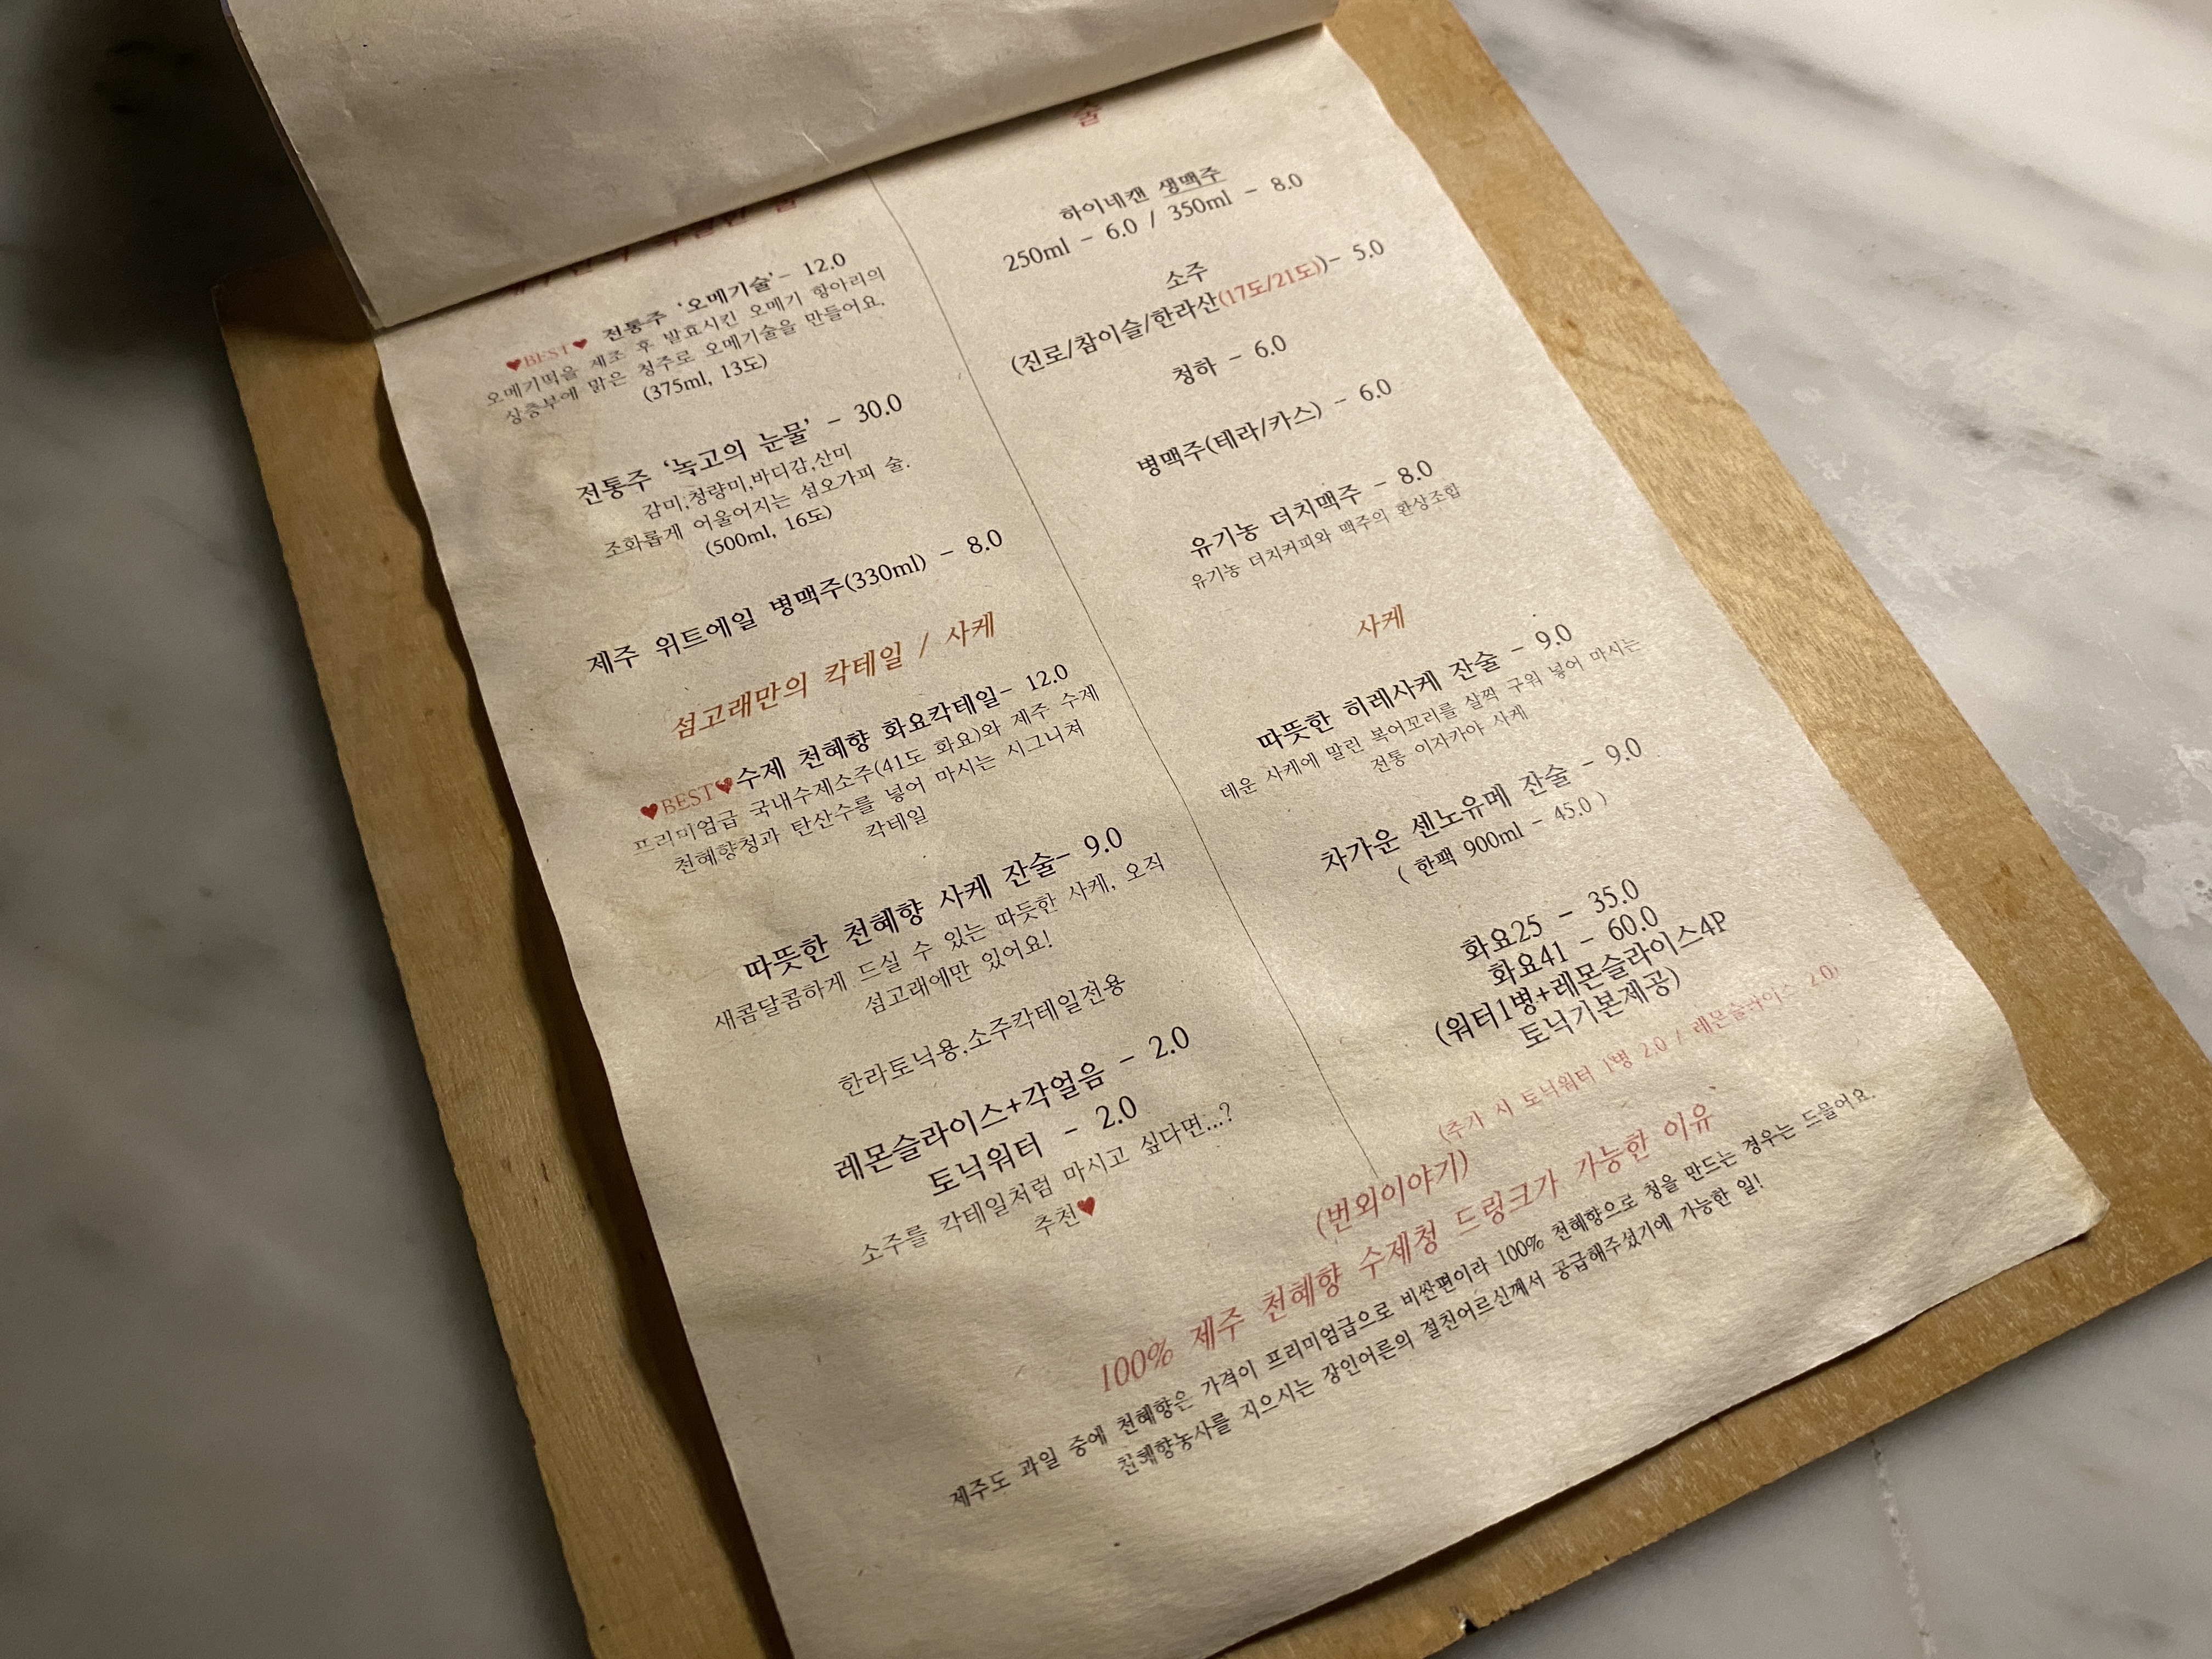 ♥BEST♥ 전통주 '오메기술'- 12.0
오메기떡을 제조 후 발효시킨 오메기 항아리의
상층부에 맑은 청주로 오메기술을 만들어요.
(375ml, 13도)
전통주 '녹고의 눈물' - 30.0
감미,청량미,바디감,산미
조화롭게 어울어지는 섬오가피 술.
(500ml, 16도)
제주 위트에일 병맥주(330ml) - 8.0
섬고래만의 칵테일 / 사케
♥BEST♥수제 천혜향 화요칵테일- 12.0
프리미엄급 국내수제소주(41도 화요)와 제주 수제
천혜향청과 탄산수를 넣어 마시는 시그니쳐
칵테일
따뜻한 천혜향 사케 잔술- 9.0
새콤달콤하게 드실 수 있는 따듯한 사케, 오직
섬고래에만 있어요!
한라토닉용,소주칵테일전용
레몬슬라이스+각얼음 - 2.0
토닉워터 - 2.0
소주를 칵테일처럼 마시고 싶다면...?
추천♥
술
하이네캔 생맥주
250ml - 6.0 / 350ml - 8.0
소주
(진로/참이슬/한라산(17도/21도))- 5.0
청하 - 6.0
병맥주(테라/카스) - 6.0
유기농 더치맥주 - 8.0
유기농 더치커피와 맥주의 환상조합
사케
따뜻한 히레사케 잔술 - 9.0
데운 사케에 말린 복어꼬리를 살짝 구워 넣어 마시는
전통 이자카야 사케
차가운 센노유메 잔술 - 9.0
( 한팩 900ml - 45.0 )
화요25 - 35.0
화요41 - 60.0
(워터1병+레몬슬라이스4P
토닉기본제공)
(추가 시 토닉워터 1병 2.0 / 레몬슬라이스 2.0)
(번외이야기)
100% 제주 천혜향 수제청 드링크가 가능한 이유
제주도 과일 중에 천혜향은 가격이 프리미엄급으로 비싼편이라 100% 천혜향으로 청을 만드는 경우는 드물어요.
천혜향농사를 지으시는 장인어른의 절친어르신께서 공급해주셨기에 가능한 일!